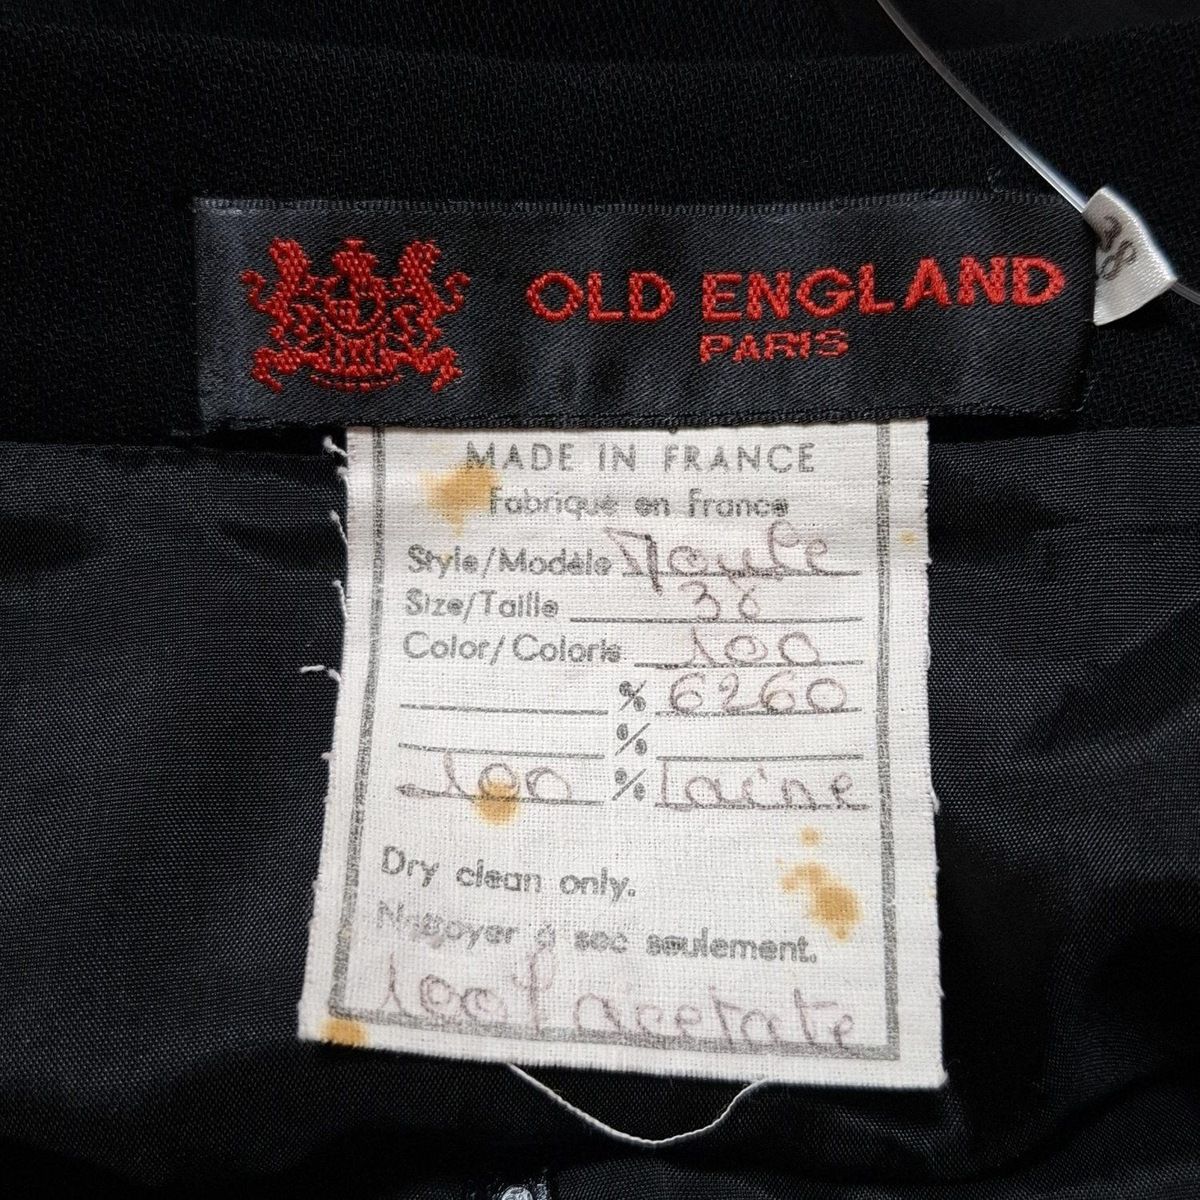 OLD ENGLAND
PARIS
38
MADE IN FRANCE
Fabrique en France
Style/Modèle
Size/Taille 38
Color/Coloris 100
% 6260
%
100 % Laine
Dry clean only.
Nettoyer à sec seulement.
100% acetate